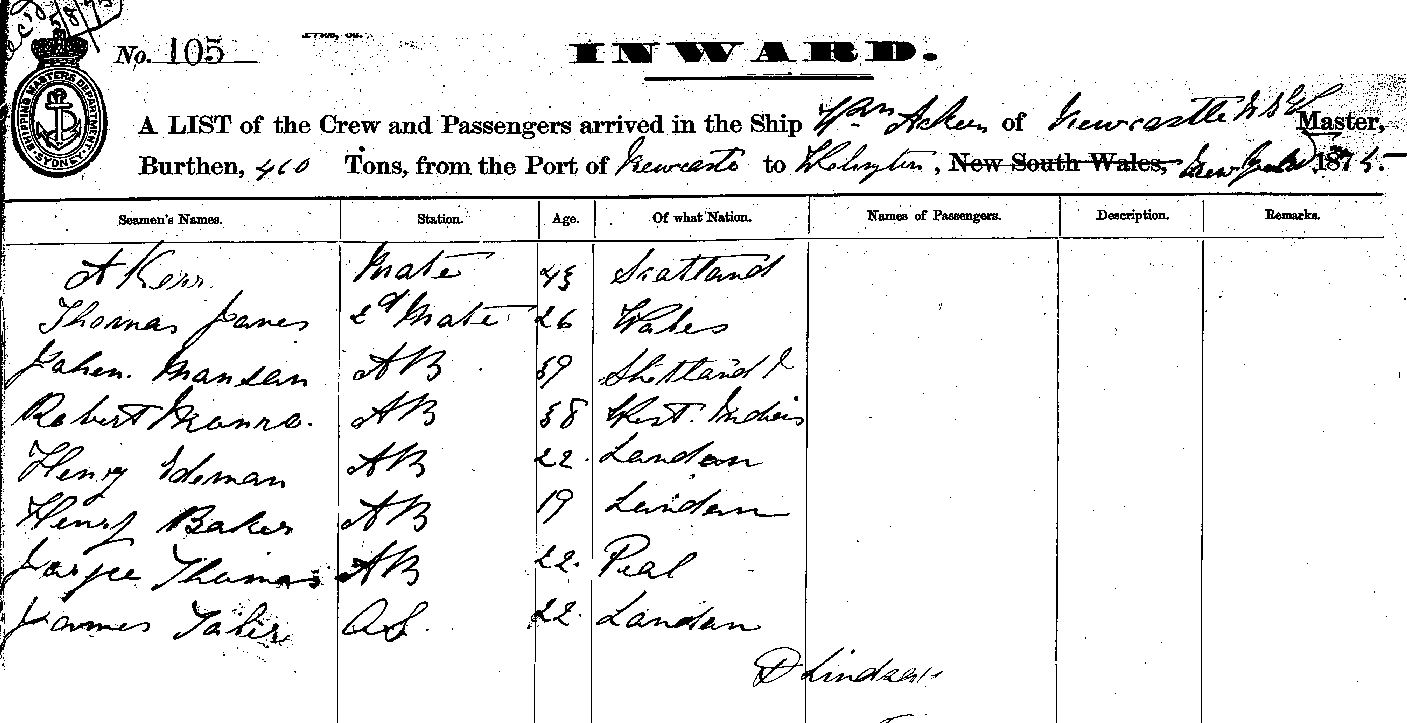 No. 105
INWARD.
A LIST of the Crew and Passengers arrived in the Ship Wm Acken of Newcastle NSW Master,
Burthen, 460 Tons, from the Port of Newcastle to , New South Wales, 1875.
SHIPPING MASTERS DEPARTMENT SYDNEY
Seamen's Names. Station. Age. Of what Nation. Names of Passengers. Description. Remarks.
A Kerr Mate 43 Scotland
Thomas Jones 2d Mate 26 Wales
Manson AB 39 Shetland I
Robert Monro. AB 38 West Indies
Henry Edeman AB 22. London
Henry Baker AB 19 London
Thomas AB 22. Peal
James OS. 22. London
D Lindsay